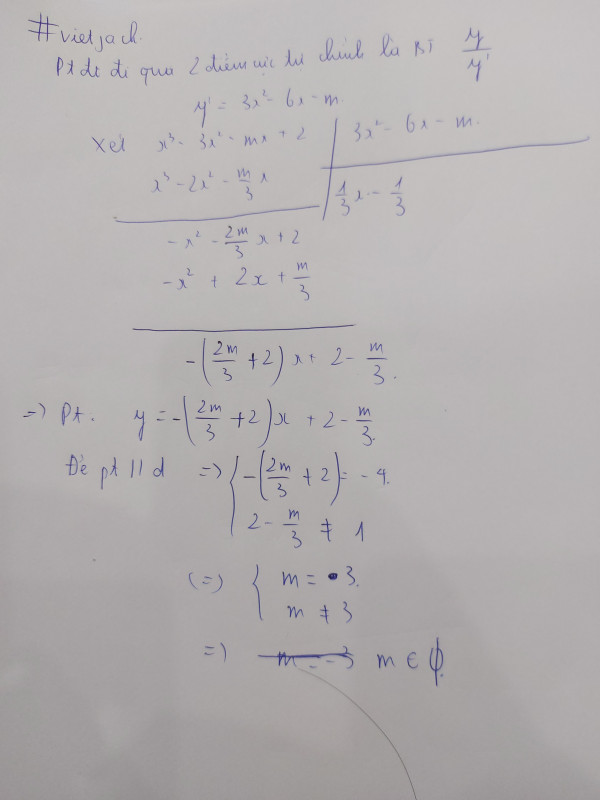 #vietjach.
Pt đt đi qua 2 điểm cực trị chính là BT y/y'
y' = 3x² - 6x - m
Xét x³ - 3x² - mx + 2 | 3x² - 6x - m.
x³ - 2x² - m/3 x | 1/3 x - 1/3
- x² - 2m/3 x + 2
- x² + 2x + m/3
-(2m/3 + 2) x + 2 - m/3.
=) Pt. y = -(2m/3 + 2)x + 2 - m/3.
Để pt // d =) { -(2m/3 + 2) = - 4.
2 - m/3 ≠ 1
(=) { m = 3.
m ≠ 3
=) m ∈ ϕ.